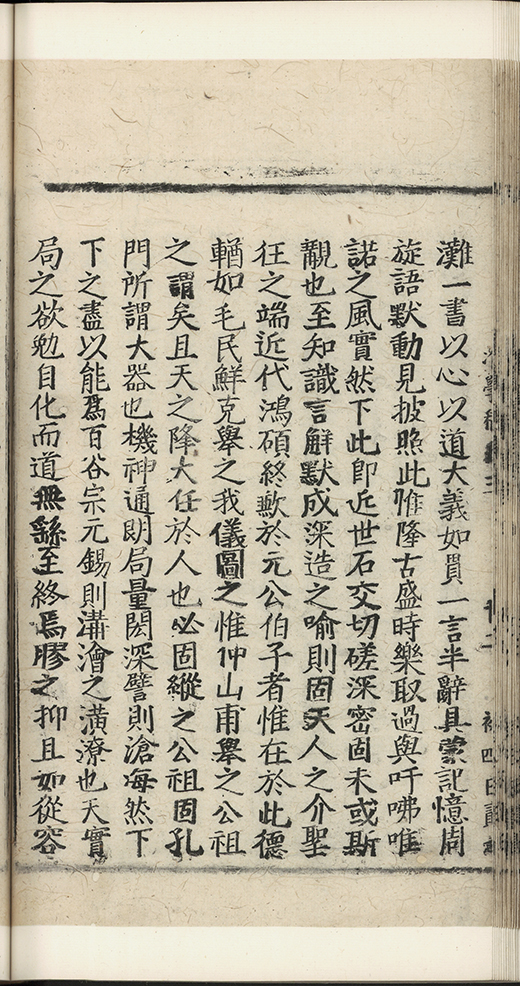 灘一書以心以道大義如貫一言半辭具蒙記憶周
旋語默動見披照此惟隆古盛時樂取過與吁咈唯
諾之風實然下此卽近世石交切磋深密固未或斯
覯也至知識言觧默成深造之喻則固天人之介聖
狂之端近代鴻碩終歉於元公伯子者惟在於此德
輶如毛民鮮克舉之我儀圖之惟仲山甫舉之公祖
之謂矣且天之降大任於人也必固縱之公祖固孔
門所謂大器也機神通朗局量閎深譬則滄海然下
下之盡以能爲百谷宗元錫則溝澮之潢潦也天實
局之欲勉自化而道無繇至終焉膠之抑且如從容